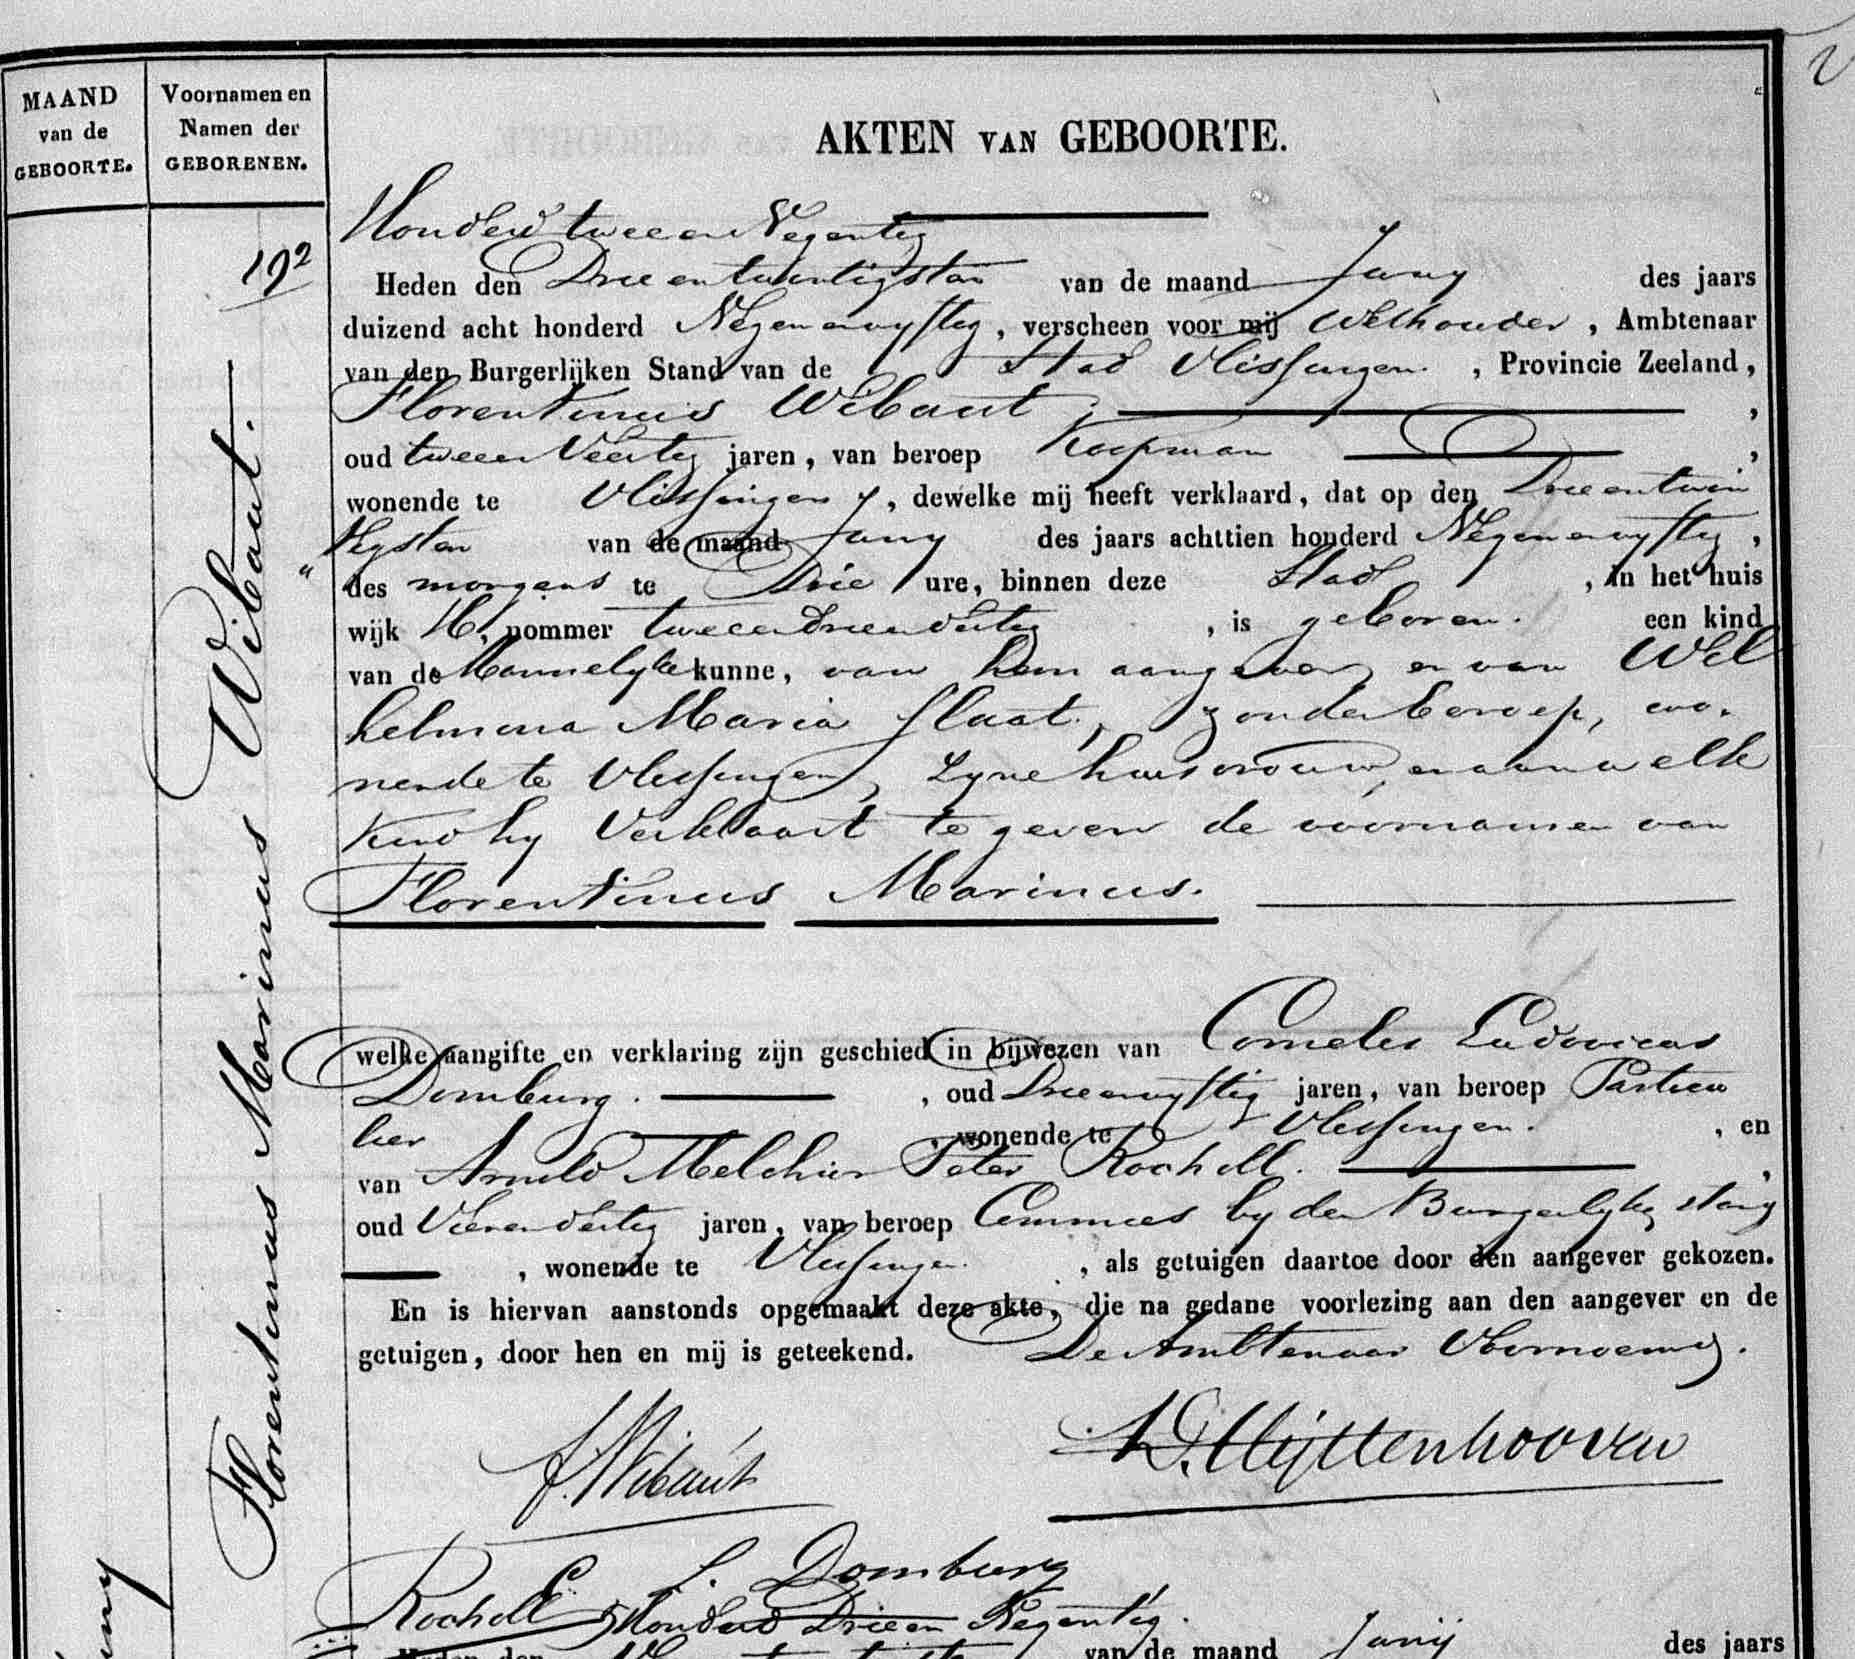 MAAND
van de
GEBOORTE.
Voornamen en
Namen der
GEBORENEN.
AKTEN VAN GEBOORTE.
192
Florentinus Marinus Wibaut.
Honderd twee en Negentig
Heden den Drie en twintigsten van de maand Juny des jaars
duizend acht honderd Negen en vyftig, verscheen voor mij Wethouder, Ambtenaar
van den Burgerlijken Stand van de Stad Vlissingen, Provincie Zeeland,
Florentinus Wibaut,
oud twee en Veertig jaren, van beroep Koopman,
wonende te Vlissingen, dewelke mij heeft verklaard, dat op den Drie en twin
tigsten van de maand Juny des jaars achttien honderd Negen en vyftig,
des morgens te Drie ure, binnen deze Stad, in het huis
wijk H, nommer twee en Drie en dertig, is geboren. een kind
van de Mannelyke kunne, van hem aangever, en van Wil
helmina Maria Slaat, zonder beroep, wo-
nende te Vlissingen, zyne huisvrouw, en aan welk
Kind hy Verklaart te geven de voornamen van
Florentinus Marinus.
welke aangifte en verklaring zijn geschied in bijwezen van Cornelis Ludovicus
Domburg., oud Drie en vyftig jaren, van beroep Particu
lier, wonende te Vlissingen., en
van Arnold Melchior Peter Rochell.,
oud Vier en dertig jaren, van beroep Commies by den Burgerlyke stand
, wonende te Vlissingen., als getuigen daartoe door den aangever gekozen.
En is hiervan aanstonds opgemaakt deze akte, die na gedane voorlezing aan den aangever en de
getuigen, door hen en mij is geteekend. De Ambtenaar Voornoemd.
F. Wibaut
Uijttenhooven
Domburg
Rochell
Honderd Drie en Negentig.
Heden den van de maand Junij des jaars